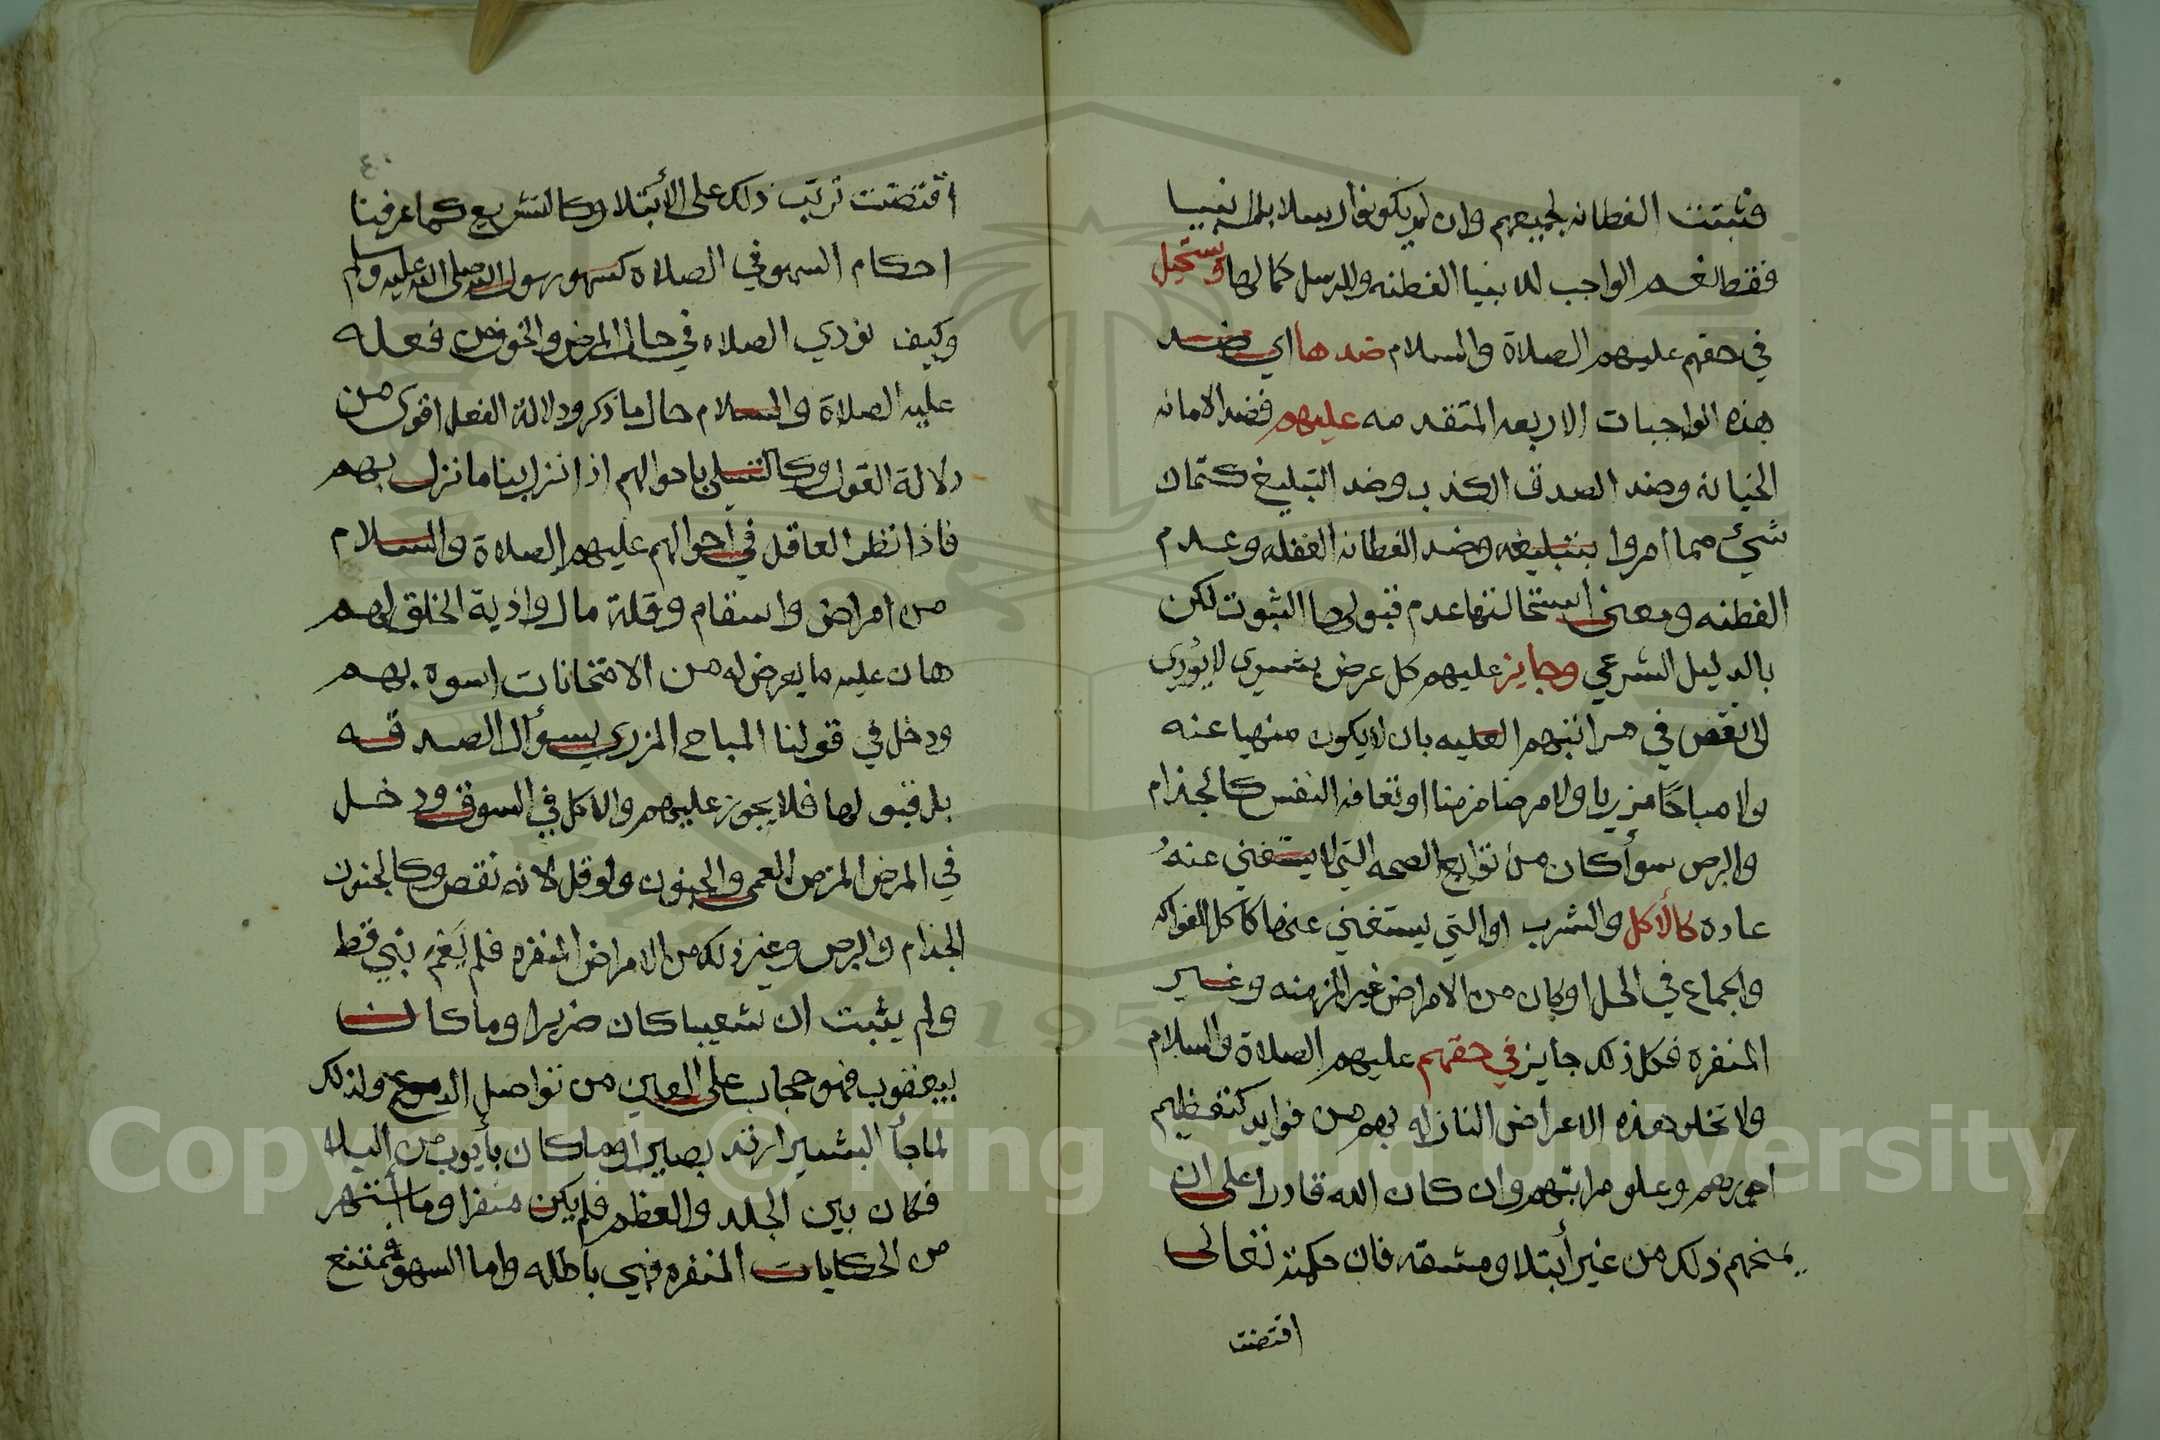 فثبتت الفطانه لجميعهم وان لم يكونوا رسلا بل انبيا
فقط نعم الواجب للانبيا الفطنه وللرسل كمالها ويستحيل
في حقهم عليهم الصلاة والسلام ضدها اي ضد
هذه الواجبات الاربعه المتقدمه عليهم فضد الامانه
الخيانه وضد الصدق الكذب وضد التبليغ كتمان
شيء مما امروا بتبليغه وضد الفطانه الغفله وعدم
الفطنه ومعنى استحالتها عدم قبولها الثبوت لكن
بالدليل الشرعي وجايز عليهم كل عرض بشري لا يؤدي
الى نقص في مراتبهم العليه بان لا يكون منهيا عنه
ولا مباحًا مزريا ولا مرضا مزمنا او تعافه النفس كالجذام
والبرص سوأ كان من توابع الصحه التي لا يستغني عنهُ
عاده كالأكل والشرب او التي يستغني عنها كاكل الفواكه
والجماع في الحل او كان من الامراض غير المزمنه وغير
المنفره فكل ذلك جايز في حقهم عليهم الصلاة والسلام
ولا تخلو هذه الاعراض النازله بهم من فوايد كتعظيم
اجورهم وعلو مراتبهم وان كان الله قادرا على ان
يمنحهم ذلك من غير أبتلا ومشقه فان حكمته تعالى
اقتضت
٤٠
اقتضت ترتب ذلك على الأبتلا وكالتشريع كما عرفنا
احكام السهو في الصلاه كسهو رسول الله صلى الله عليه وسلم
وكيف نؤدي الصلاه في حال المرض والخوف من فعله
عليه الصلاة والسلام حال ما ذكر ودلالة الفعل اقوى من
دلالة القول وكالتسلي باحوالهم اذا نزل بنا ما نزل بهم
فاذا نظر العاقل في احوالهم عليهم الصلاة والسلام
من امراض واسقام وقلة مال واذية الخلق لهم
هان عليه ما يعرض له من الامتحانات اسوه بهم
ودخل في قولنا المباح المزري سؤال الصدقه
بل قبولها فلا يجوز عليهم والاكل في السوق ودخل
في المرض المزمن العمى والجنون ولو قل لانه نقص وكالجنون
الجذام والبرص وغير ذلك من الامراض المنفره فلم يَعْمَ نبي قط
ولم يثبت ان شعيبا كان ضريرا وما كان
بيعقوب فهو حجاب على العين من تواصل الدموع ولذلك
لما جأ البشير ارتد بصيرا وما كان بأيوب من البلا
فكان بين الجلد والعظم فلم يكن منفرا وما أشتهر
من الحكايات المنفره فهي باطله واما السهو فممتنع